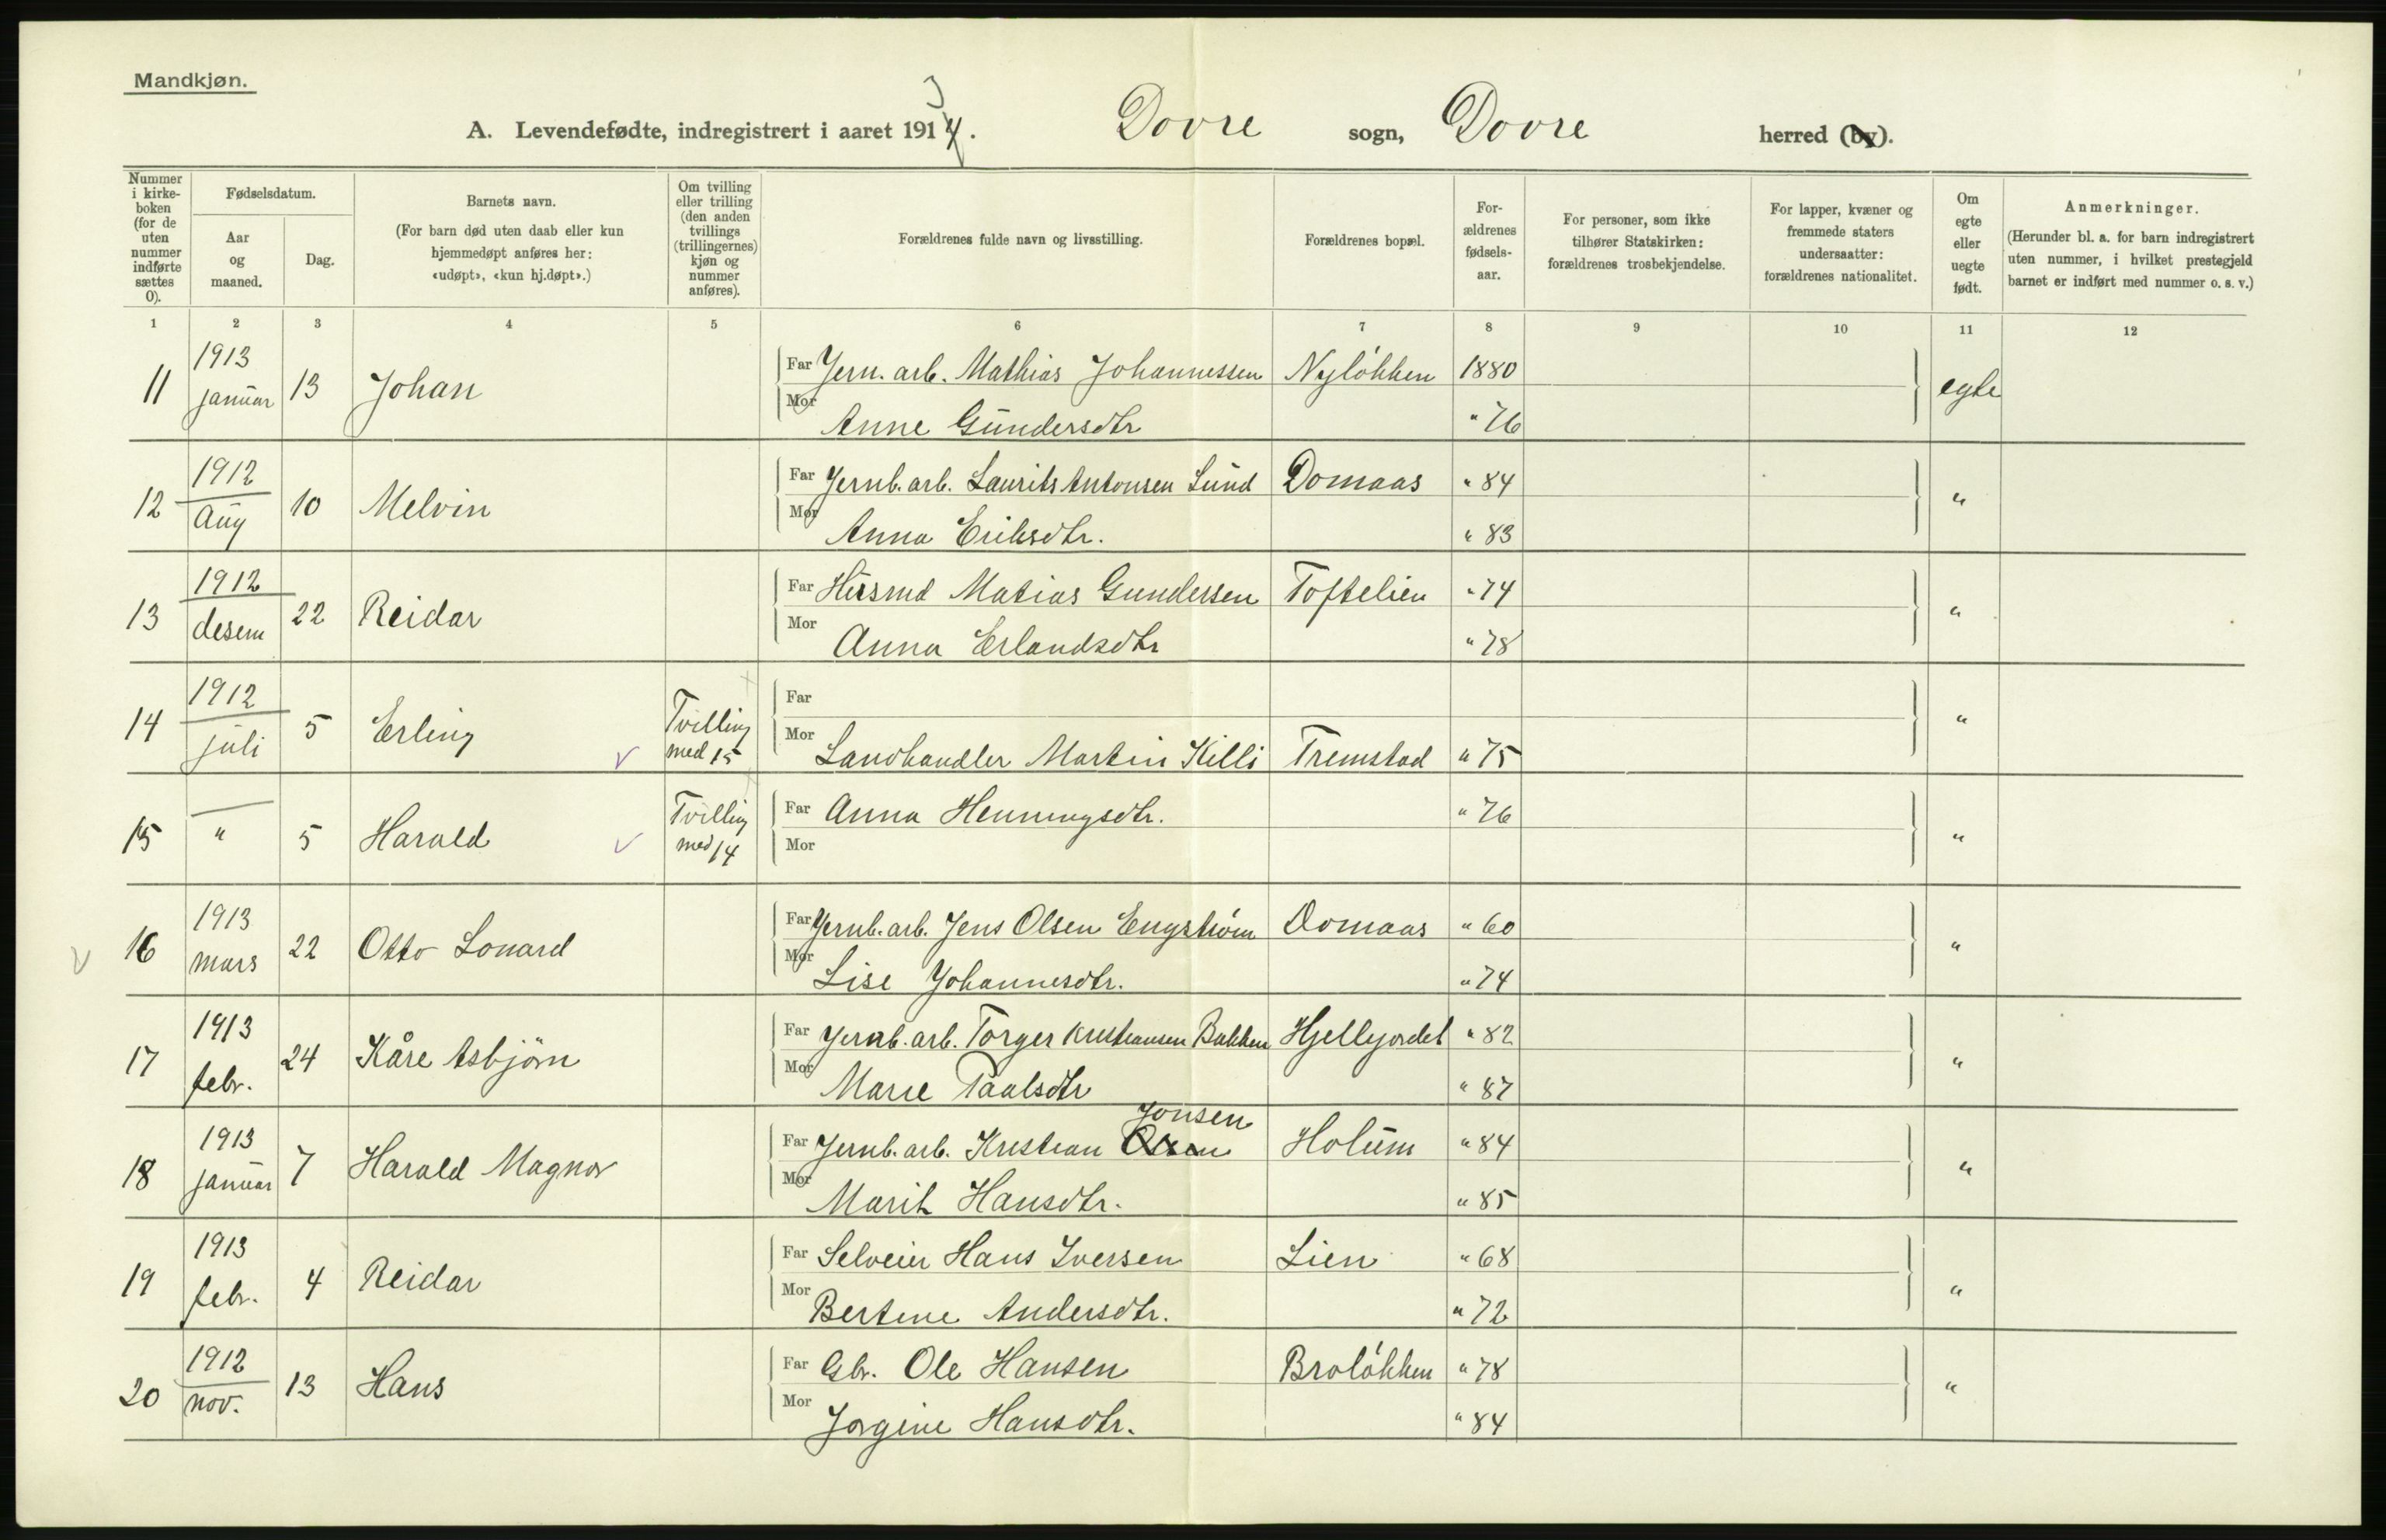 Mandkjøn.
A. Levendefødte, indregistrert i aaret 1913. Dovre sogn, Dovre herred (by).
Nummer i kirkeboken (for de uten nummer indførte sættes 0).
Fødselsdatum.
Aar og maaned.
Dag.
Barnets navn.
(For barn død uten daab eller kun hjemmedøpt anføres her: «udøpt», «kun hj.døpt».)
Om tvilling eller trilling (den anden tvillings (trillingernes) kjøn og nummer anføres).
Forældrenes fulde navn og livsstilling.
Forældrenes bopæl.
Forældrenes fødselsaar.
For personer, som ikke tilhører Statskirken: forældrenes trosbekjendelse.
For lapper, kvæner og fremmede staters undersaatter: forældrenes nationalitet.
Om egte eller uegte født.
Anmerkninger.
(Herunder bl. a. for barn indregistrert uten nummer, i hvilket prestegjeld barnet er indført med nummer o. s. v.)
1 2 3 4 5 6 7 8 9 10 11 12
11 1913 januar 13 Johan Far Jern. arb. Mathias Johannessen Nyløkken 1880 egte
Mor Anne Gundersdtr " 76
12 1912 Aug 10 Melvin Far Jernb. arb. Laurits Antonsen Lund Domaas " 84 "
Mor Anna Eriksdtr. " 83
13 1912 desem 22 Reidar Far Husmd Matias Gundersen Toftelien " 74 "
Mor Anna Erlandsdtr " 78
14 1912 juli 5 Erling Tvilling med 15 Far "
Mor Landhandler Martin Killi Tremstad " 75
15 " 5 Harald Tvilling med 14 Far Anna Henningsdtr. " 76 "
Mor
16 1913 mars 22 Otto Lonard Far Jernb. arb. Jens Olsen Engstrøm Domaas " 60 "
Mor Lise Johannesdtr. " 74
17 1913 febr. 24 Kåre Asbjörn Far Jernb. arb. Torger Kristiansen Bakken Hjellejordet " 82 "
Mor Marie Paalsdtr " 87
Jonsen
18 1913 januar 7 Harald Magnor Far Jernb. arb. Kristian Olsen Holum " 84 "
Mor Marit Hansdtr. " 85
19 1913 febr. 4 Reidar Far Selveier Hans Iversen Lien " 68 "
Mor Bertine Andersdtr. " 72
20 1912 nov. 13 Hans Far Gbr. Ole Hansen Broløkken " 78 "
Mor Jorgine Hansdtr. " 84